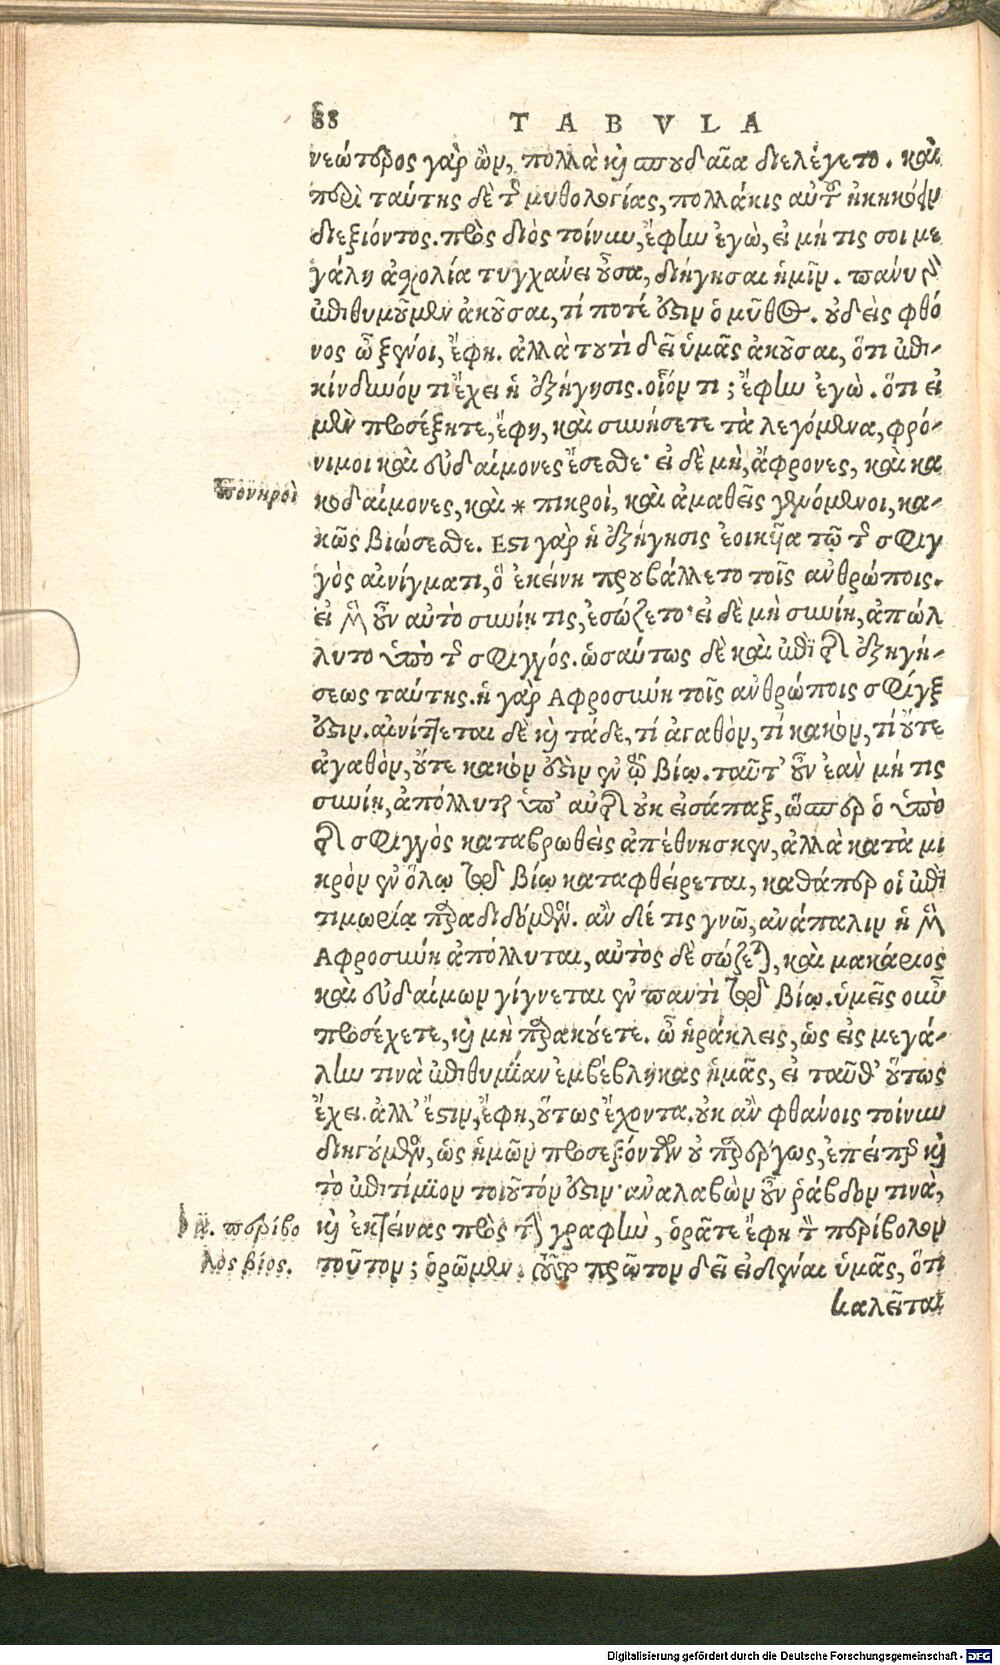 88 TABVLA
νεώτερος γὰρ ὢν, πολλὰ καὶ σπουδαῖα διελέγετο. καὶ
περὶ ταύτης δὲ τῆς μυθολογίας, πολλάκις αὐτοῦ ἠκηκόειν
διεξιόντος. πρὸς διὸς τοίνυν, ἔφην ἐγὼ, εἰ μή τις σοι με
γάλη ἀσχολία τυγχάνει οὖσα, διήγησαι ἡμῖν. πάνυ γὰρ
ἐπιθυμοῦμεν ἀκοῦσαι, τί ποτέ ἐστιν ὁ μῦθος. οὐδεὶς φθό
νος ὦ ξένοι, ἔφη. ἀλλὰ τουτὶ δεῖ ὑμᾶς ἀκοῦσαι, ὅτι ἐπι-
κίνδυνόν τι ἔχει ἡ ἐξήγησις. οἷόν τι; ἔφην ἐγὼ. ὅτι εἰ
μὲν προσέξητε, ἔφη, καὶ συνήσετε τὰ λεγόμενα, φρό-
νιμοι καὶ εὐδαίμονες ἔσεσθε· εἰ δὲ μὴ, ἄφρονες, καὶ κα
πονηροὶ
κοδαίμονες, καὶ * πικροὶ, καὶ ἀμαθεῖς γενόμενοι, κα-
κῶς βιώσεσθε. Εστι γὰρ ἡ ἐξήγησις ἐοικυῖα τῷ τῆς σφιγ
γὸς αἰνίγματι, ὃ ἐκείνη προυβάλλετο τοῖς ἀνθρώποις.
εἰ μὲν οὖν αὐτὸ συνίῃ τις, ἐσώζετο· εἰ δὲ μὴ συνίῃ, ἀπώλ
λυτο ὑπὸ τῆς σφιγγός. ὡσαύτως δὲ καὶ ἐπὶ τῆς ἐξηγή-
σεως ταύτης. ἡ γὰρ Αφροσύνη τοῖς ἀνθρώποις σφίγξ
ἐστιν. αἰνίττεται δὲ καὶ τάδε, τί ἀγαθὸν, τί κακὸν, τί οὔτε
ἀγαθὸν, οὔτε κακόν ἐστὶν ἐν τῷ βίῳ. ταῦτ' οὖν ἐὰν μή τις
συνίῃ, ἀπόλλυται ὑπ' αὐτῆς οὐκ εἰσάπαξ, ὥσπερ ὁ ὑπὸ
τῆς σφιγγὸς καταβρωθεὶς ἀπέθνησκεν, ἀλλὰ κατὰ μι
κρὸν ἐν ὅλῳ τῷ βίῳ καταφθείρεται, καθάπερ οἱ ἐπὶ
τιμωρίᾳ παραδιδόμενοι. ἂν δέ τις γνῷ, ἀνάπαλιν ἡ μὲν
Αφροσύνη ἀπόλλυται, αὐτὸς δὲ σώζεται, καὶ μακάριος
καὶ εὐδαίμων γίγνεται ἐν παντὶ τῷ βίῳ. ὑμεῖς οὖν
προσέχετε, καὶ μὴ παρακούετε. ὦ ἡράκλεις, ὡς εἰς μεγά-
λην τινὰ ἐπιθυμίαν ἐμβέβληκας ἡμᾶς, εἰ ταῦθ' οὕτως
ἔχει. ἀλλ' ἔστιν, ἔφη, οὕτως ἔχοντα. οὐκ ἂν φθάνοις τοίνυν
διηγούμενος, ὡς ἡμῶν προσεξόντων οὐ παρέργως, ἐπείπερ καὶ
τὸ ἐπιτίμιον τοιοῦτόν ἐστιν· ἀναλαβὼν οὖν ῥάβδον τινὰ,
ἢ. περίβο
λὸς βίος.
καὶ ἐκτείνας πρὸς τὴν γραφὴν, ὁρᾶτε ἔφη τὸν περίβολον
τοῦτον; ὁρῶμεν. πρῶτον δεῖ εἰδέναι ὑμᾶς, ὅτι
καλεῖται
Digitalisierung gefördert durch die Deutsche Forschungsgemeinschaft - DFG